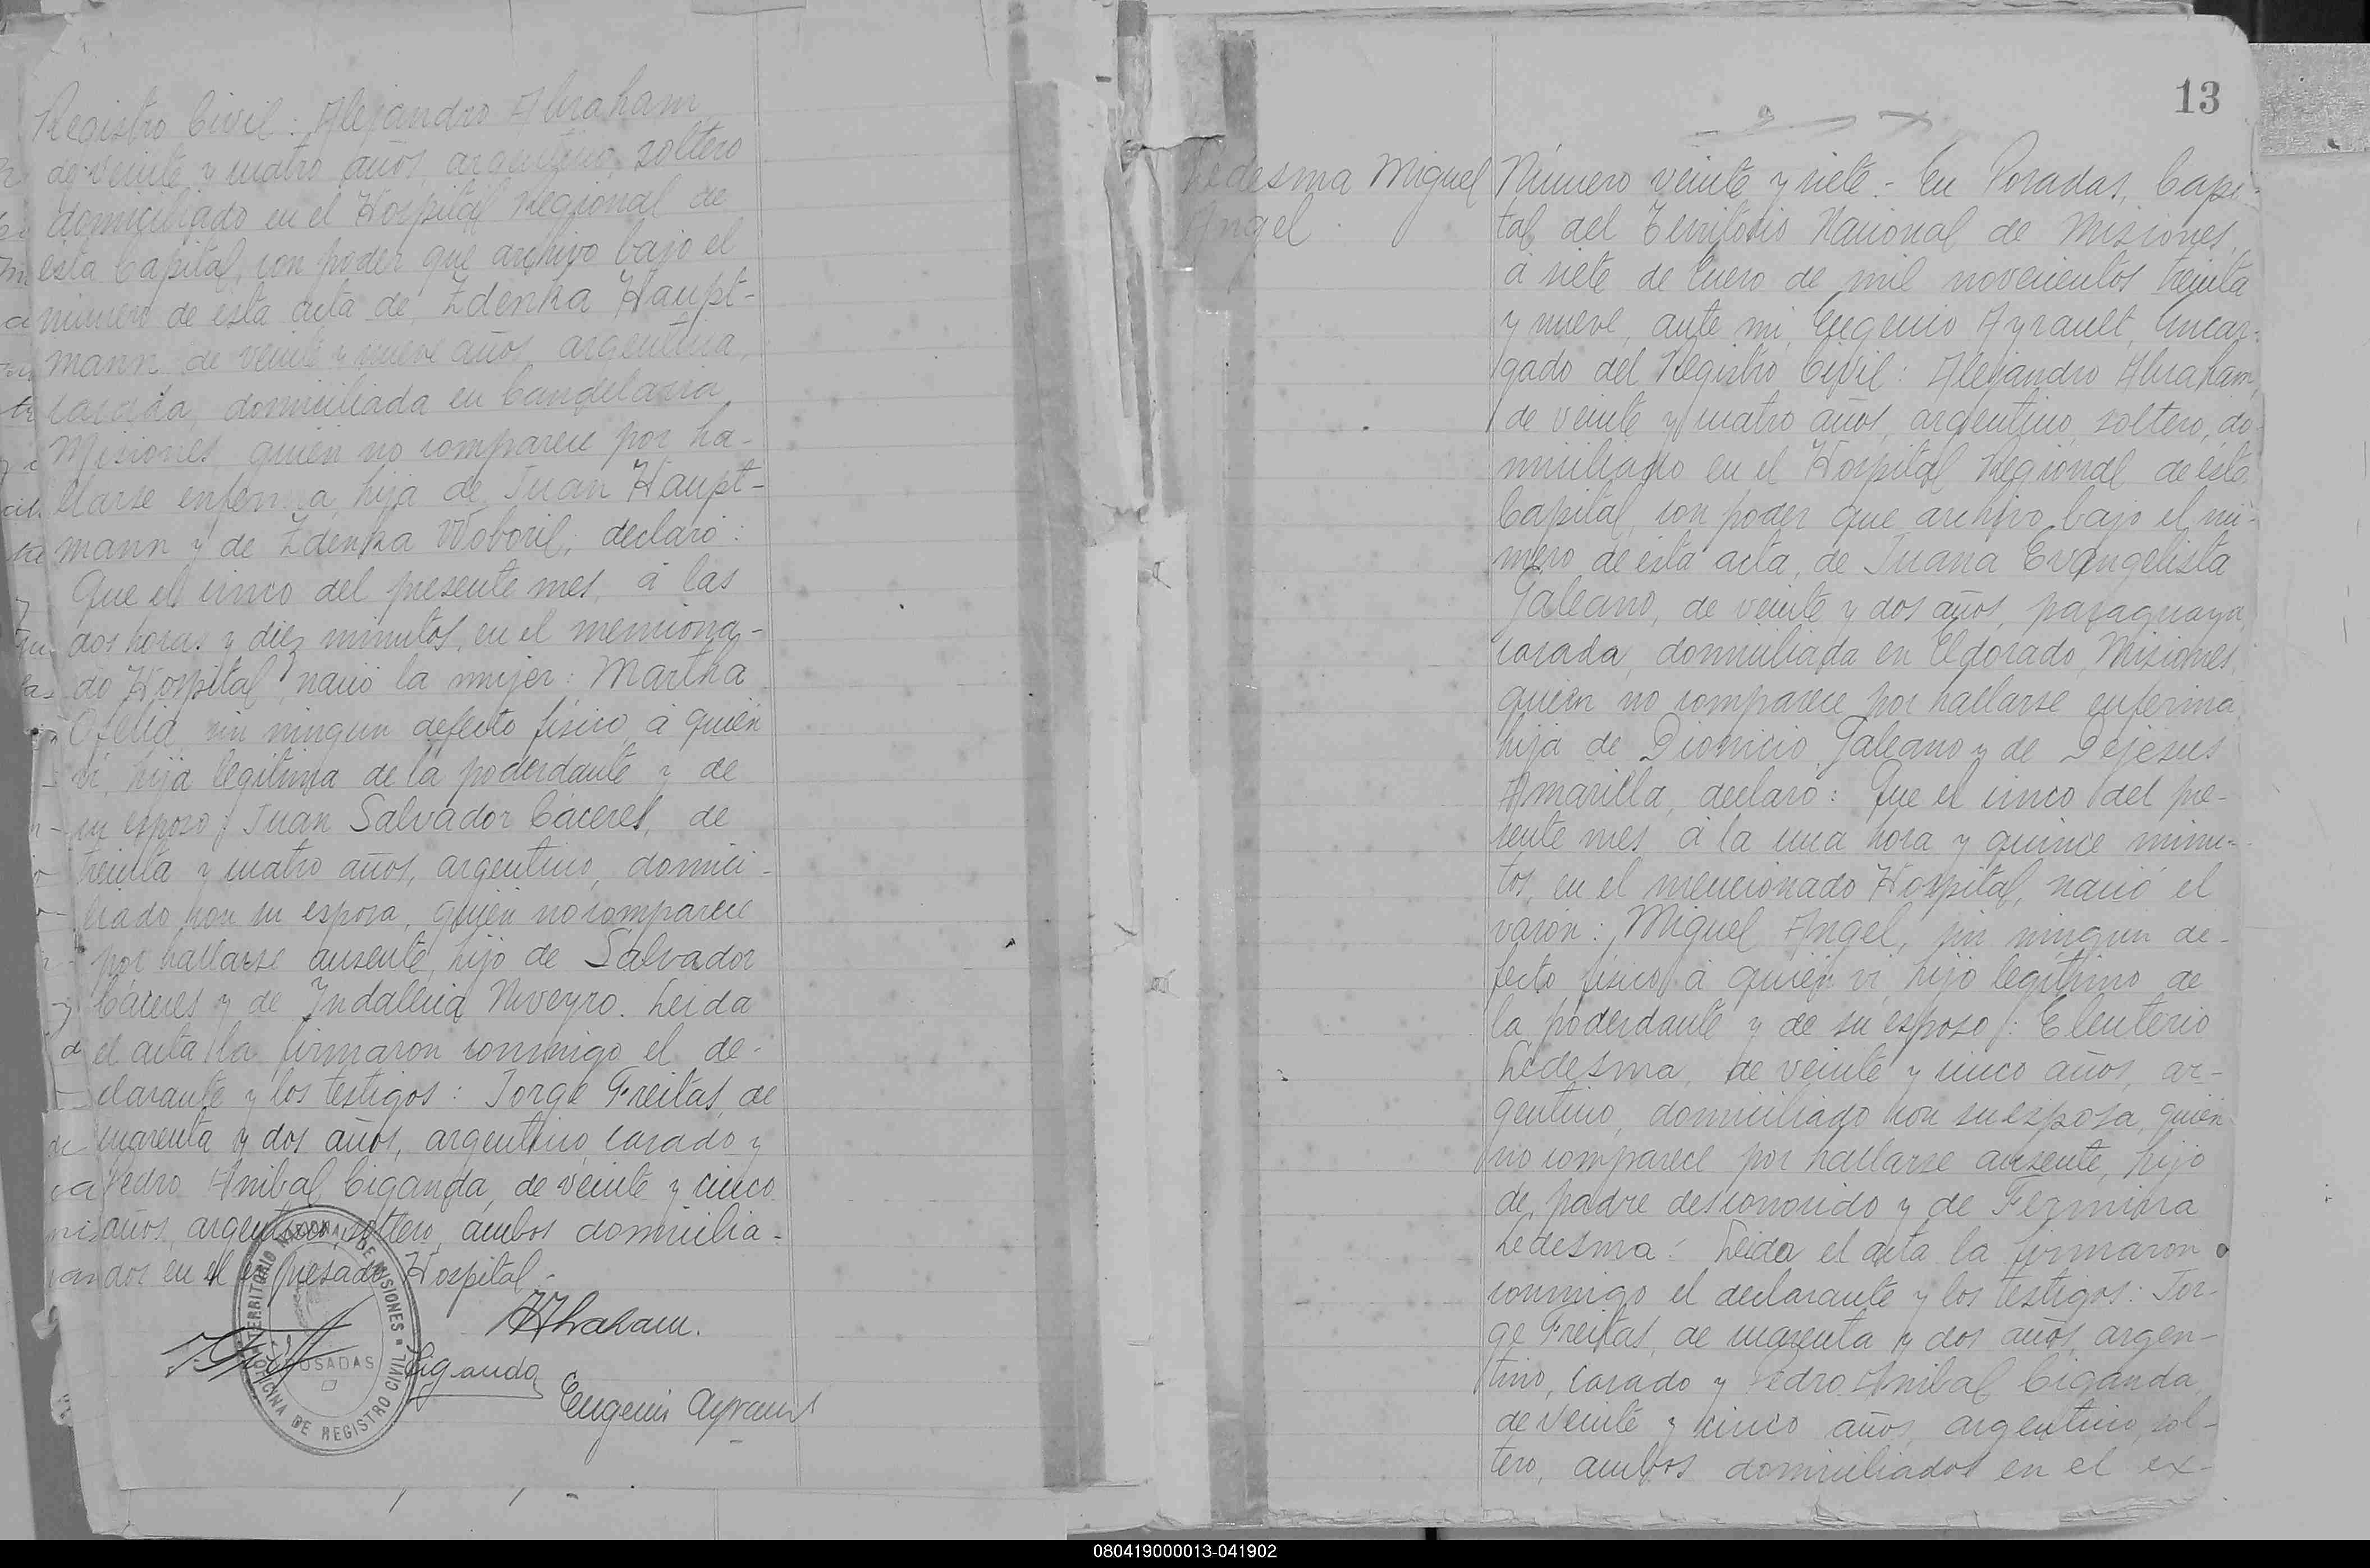 Registro Civil: Alejandro Abraham
de veinte y cuatro años, argentino, soltero
domiciliado en el Hospital Regional de
esta Capital, con poder que archivo bajo el
número de esta acta de Zdenka Haupt-
mann, de veinte y nueve años, argentina,
casada, domiciliada en Candelaria
Misiones, quién no comparece por ha-
llarse enferma, hija de Juan Haupt-
mann y de Zdenka Woboril, declaró:
Que el cinco del presente mes, á las
dos horas y diez minutos, en el menciona-
do Hospital, nació la mujer: Martha
Ofelia, sin ningun defecto físico, á quién
ví, hija legítima de la poderdante y de
su esposo, Juan Salvador Cáceres, de
treinta y cuatro años, argentino, domici-
liado con su esposa, quién no comparece
por hallarse ausente, hijo de Salvador
Cáceres y de Indalecia Niveyro. Leida
el acta la firmaron conmigo el de-
clarante y los testigos: Jorge Freitas, de
cuarenta y dos años, argentino, casado y
Pedro Anibal Ciganda, de veinte y cinco
años, argentino, soltero, ámbos domicilia-
dos en el expresado Hospital.-
AAbraham.
Ciganda
Eugenio Ayrault
TERRITORIO NACIONAL DE MISIONES
POSADAS
OFICINA DE REGISTRO CIVIL
13
Ledesma Miguel
Angel.
Número veinte y siete.- En Posadas, Capi-
tal del Territorio Nacional de Misiones,
á siete de Enero de mil novecientos treinta
y nueve, ante mi, Eugenio Ayrault, Encar-
gado del Registro Civil: Alejandro Abraham,
de veinte y cuatro años, argentino, soltero, do-
miciliado en el Hospital Regional de esta
Capital, con poder que archivo bajo el nú-
mero de esta acta, de Juana Evangelista
Galeano, de veinte y dos años, paraguaya,
casada, domiciliada en Eldorado, Misiones,
quién no comparece por hallarse enferma,
hija de Dionicio Galeano y de Dejesus
Amarilla, declaró: Que el cinco del pre-
sente mes á la una hora y quince minu-
tos, en el mencionado Hospital, nació el
varón: Miguel Angel, sin ningun de-
fecto físico, á quién ví, hijo legítimo de
la poderdante y de su esposo: Eleuterio
Ledesma, de veinte y cinco años, ar-
gentino, domiciliado con su esposa, quién
no comparece por hallarse ausente, hijo
de padre desconocido y de Fermina
Ledesma.- Leida el acta la firmaron
conmigo el declarante y los testigos: Jor-
ge Freitas, de cuarenta y dos años, argen-
tino, casado y Pedro Anibal Ciganda
de veinte y cinco años, argentino, sol-
tero, ambos domiciliados en el ex-
080419000013-041902